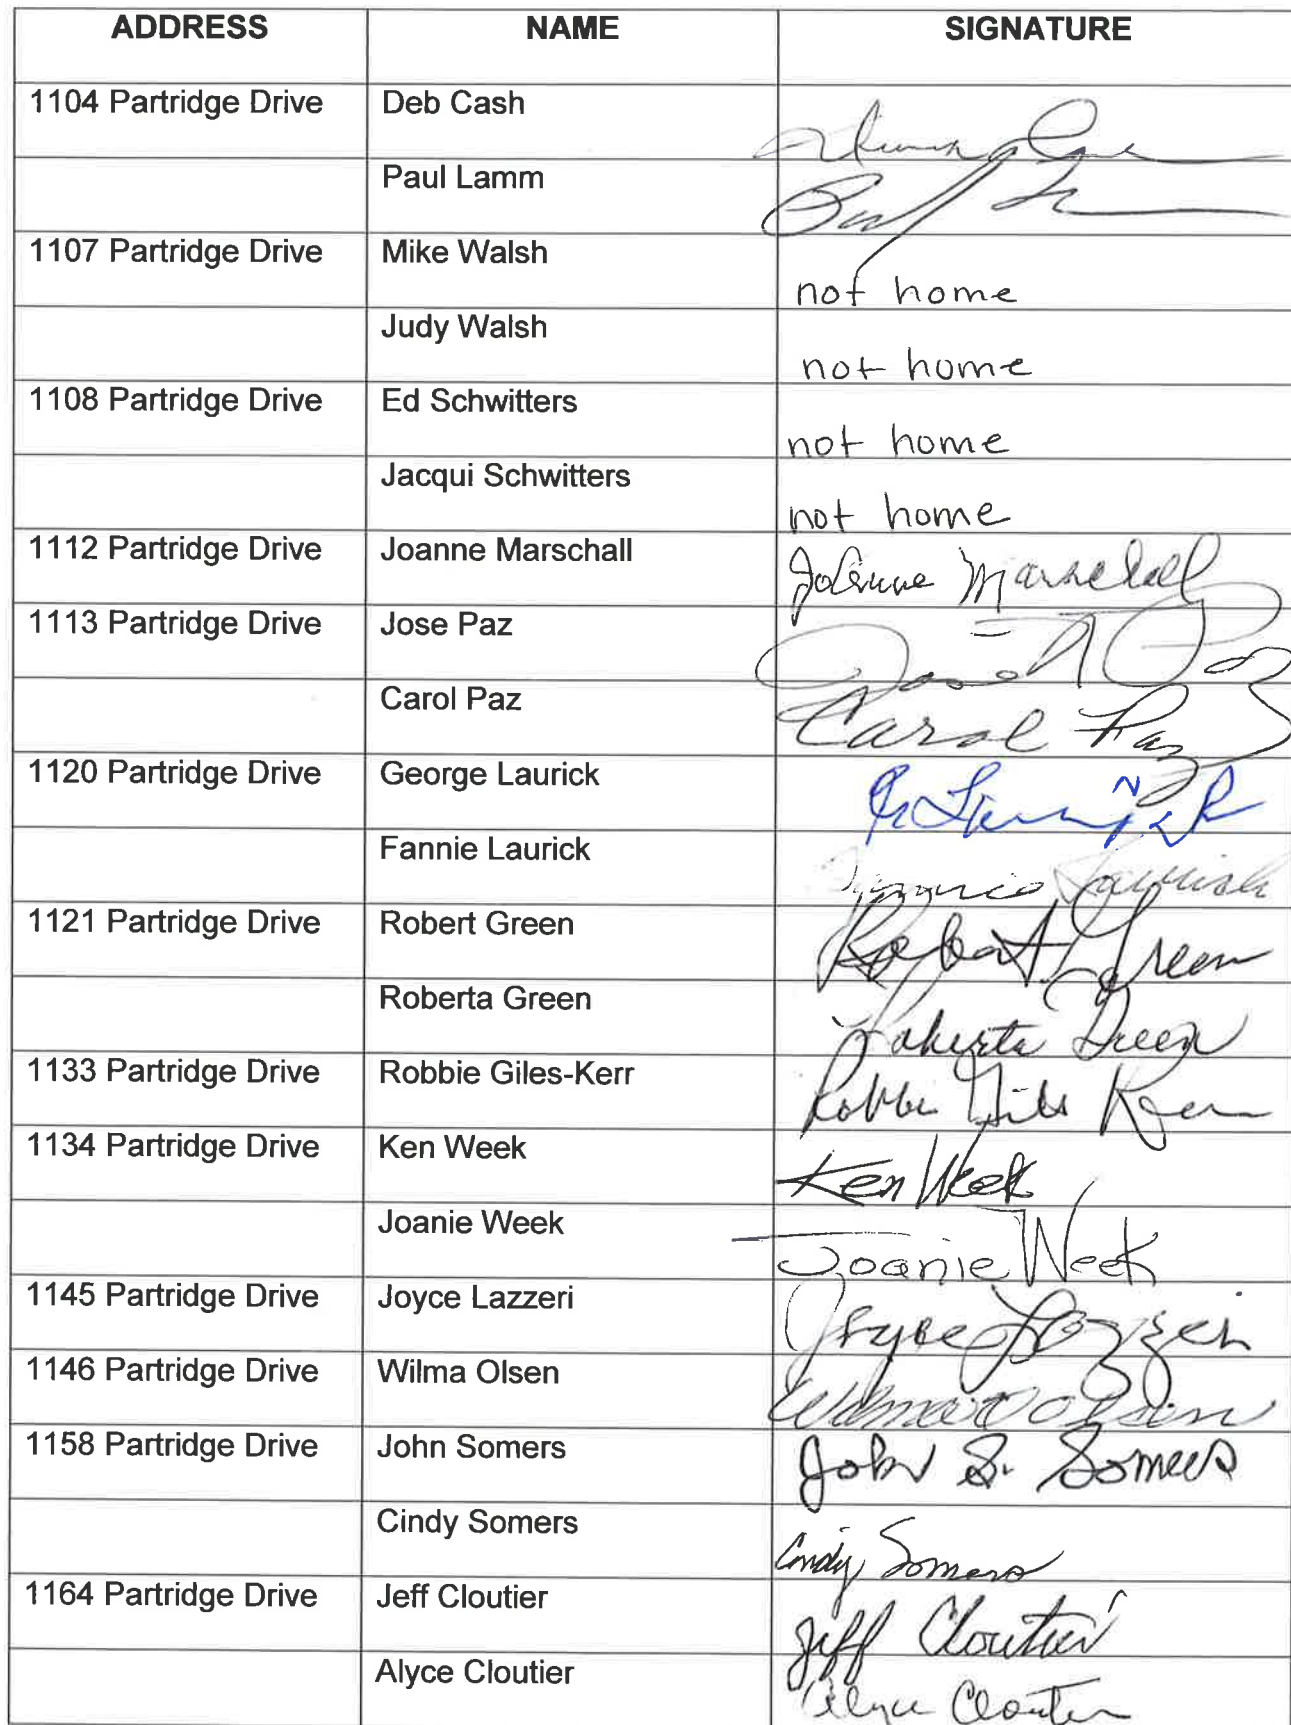 ADDRESS NAME SIGNATURE
1104 Partridge Drive Deb Cash
Paul Lamm
1107 Partridge Drive Mike Walsh not home
Judy Walsh not home
1108 Partridge Drive Ed Schwitters not home
Jacqui Schwitters not home
1112 Partridge Drive Joanne Marschall JoAnne Marschall
1113 Partridge Drive Jose Paz Jose Paz
Carol Paz Carol Paz
1120 Partridge Drive George Laurick
Fannie Laurick
1121 Partridge Drive Robert Green Robert Green
Roberta Green Roberta Green
1133 Partridge Drive Robbie Giles-Kerr Robbie Giles Kerr
1134 Partridge Drive Ken Week Ken Week
Joanie Week Joanie Week
1145 Partridge Drive Joyce Lazzeri Joyce Lazzeri
1146 Partridge Drive Wilma Olsen Wilma Olsen
1158 Partridge Drive John Somers John S. Somers
Cindy Somers Cindy Somers
1164 Partridge Drive Jeff Cloutier Jeff Cloutier
Alyce Cloutier Alyce Cloutier